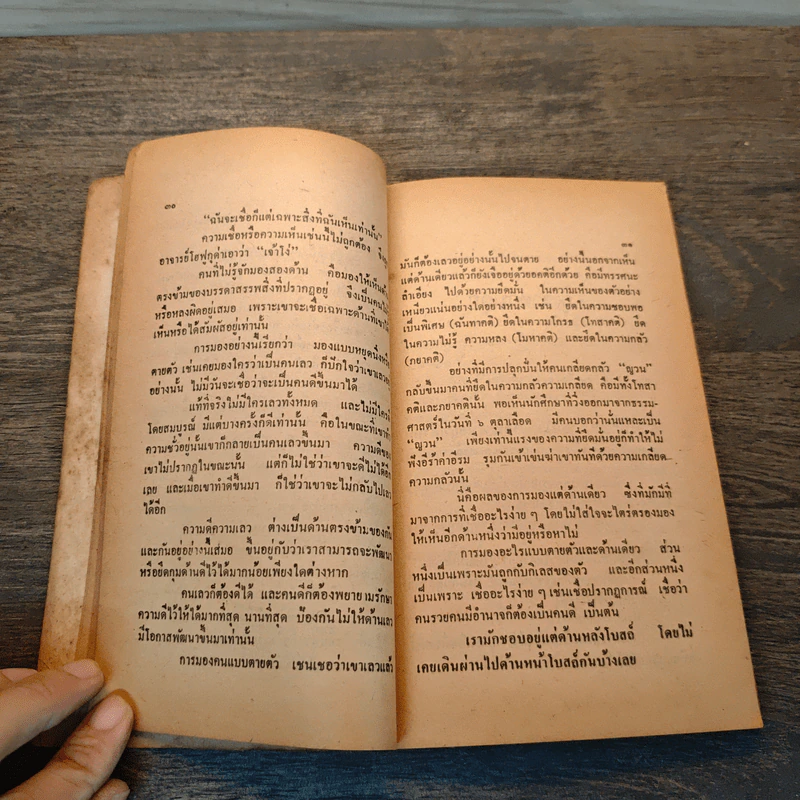 ๓๐
“ฉันจะเชื่อก็แต่เฉพาะสิ่งที่ฉันเห็นเท่านั้น”
ความเชื่อหรือความเห็นเช่นนี้ไม่ถูกต้อง ซึ่ง
อาจารย์โฮฟูกุด่าเอาว่า “เจ้าโง่”
คนที่ไม่รู้จักมองสองด้าน คือมองให้เห็นด้าน
ตรงข้ามของบรรดาสรรพสิ่งที่ปรากฏอยู่ จึงเป็นคนโง่
หรือหลงผิดอยู่เสมอ เพราะเขาจะเชื่อเฉพาะด้านที่เขาได้
เห็นหรือได้สัมผัสอยู่เท่านั้น
การมองอย่างนี้เรียกว่า มองแบบหยุดนิ่งหรือ
ตายตัว เช่นเคยมองใครว่าเป็นคนเลว ก็ปักใจว่าเขาเลวอยู่
อย่างนั้น ไม่มีวันจะเชื่อว่าจะเป็นคนดีขึ้นมาได้
แท้ที่จริงไม่มีใครเลวทั้งหมด และไม่มีใครดี
โดยสมบูรณ์ มีแต่บางครั้งก็ดีเท่านั้น คือในขณะที่เขาทำ
ความชั่วอยู่นั้นเขาก็กลายเป็นคนเลวขึ้นมา ความดีของ
เขาไม่ปรากฏในขณะนั้น แต่ก็ไม่ใช่ว่าเขาจะดีไม่ได้อีก
เลย และเมื่อเขาทำดีขึ้นมา ก็ใช่ว่าเขาจะไม่กลับไปเลว
ได้อีก
ความดีความเลว ต่างเป็นด้านตรงข้ามของกัน
และกันอยู่อย่างนี้เสมอ ขึ้นอยู่กับว่าเราสามารถจะพัฒนา
หรือยึดกุมด้านดีไว้ได้มากน้อยเพียงใดต่างหาก
คนเลวก็ต้องดีได้ และคนดีก็ต้องพยายามรักษา
ความดีไว้ให้ได้มากที่สุด นานที่สุด ป้องกันไม่ให้ด้านเลว
มีโอกาสพัฒนาขึ้นมาเท่านั้น
การมองคนแบบตายตัว เช่นเชื่อว่าเขาเลวแล้ว
๓๑
มันก็ต้องเลวอยู่อย่างนั้นไปจนตาย อย่างนี้นอกจากเห็น
แต่ด้านเดียวแล้วก็ยังเชื่ออยู่ด้วยอคติอีกด้วย คือมีทรรศนะ
ลำเอียง ไปด้วยความยึดมั่น ในความเห็นของตัวอย่าง
เหนี่ยวแน่นอย่างใดอย่างหนึ่ง เช่น ยึดในความชอบพอ
เป็นพิเศษ (ฉันทาคติ) ยึดในความโกรธ (โทสาคติ) ยึด
ในความไม่รู้ ความหลง (โมหาคติ) และยึดในความกลัว
(ภยาคติ)
อย่างที่มีการปลุกปั่นให้คนเกลียดกลัว “ญวน”
กลับขึ้นมาคนที่ยึดในความกลัวความเกลียด คือมีทั้งโทสา
คติและภยาคตินั้น พอเห็นนักศึกษาที่วิ่งออกมาจากธรรม-
ศาสตร์ในวันที่ ๖ ตุลาเลือด มีคนบอกว่านั่นแหละเป็น
“ญวน” เพียงเท่านี้แรงของความยึดมั่นอยู่ก็ทำให้ไม่
ฟังอีร้าค่าอีรม รุมกันเข้าเข่นฆ่าเขาทันทีด้วยความเกลียด
ความกลัวนั้น
นี่คือผลของการมองแต่ด้านเดียว ซึ่งที่มักมีที่
มาจากการที่เชื่ออะไรง่าย ๆ โดยไม่ใส่ใจจะไตร่ตรองมอง
ให้เห็นอีกด้านหนึ่งว่ามีอยู่หรือหาไม่
การมองอะไรแบบตายตัวและด้านเดียว ส่วน
หนึ่งเป็นเพราะมันถูกกับกิเลสของตัว และอีกส่วนหนึ่ง
เป็นเพราะ เชื่ออะไรง่าย ๆ เช่นเชื่อปรากฏการณ์ เชื่อว่า
คนรวยคนมีอำนาจก็ต้องเป็นคนดี เป็นต้น
เรามักชอบอยู่แต่ด้านหลังโบสถ์ โดยไม่
เคยเดินผ่านไปด้านหน้าโบสถ์กันบ้างเลย